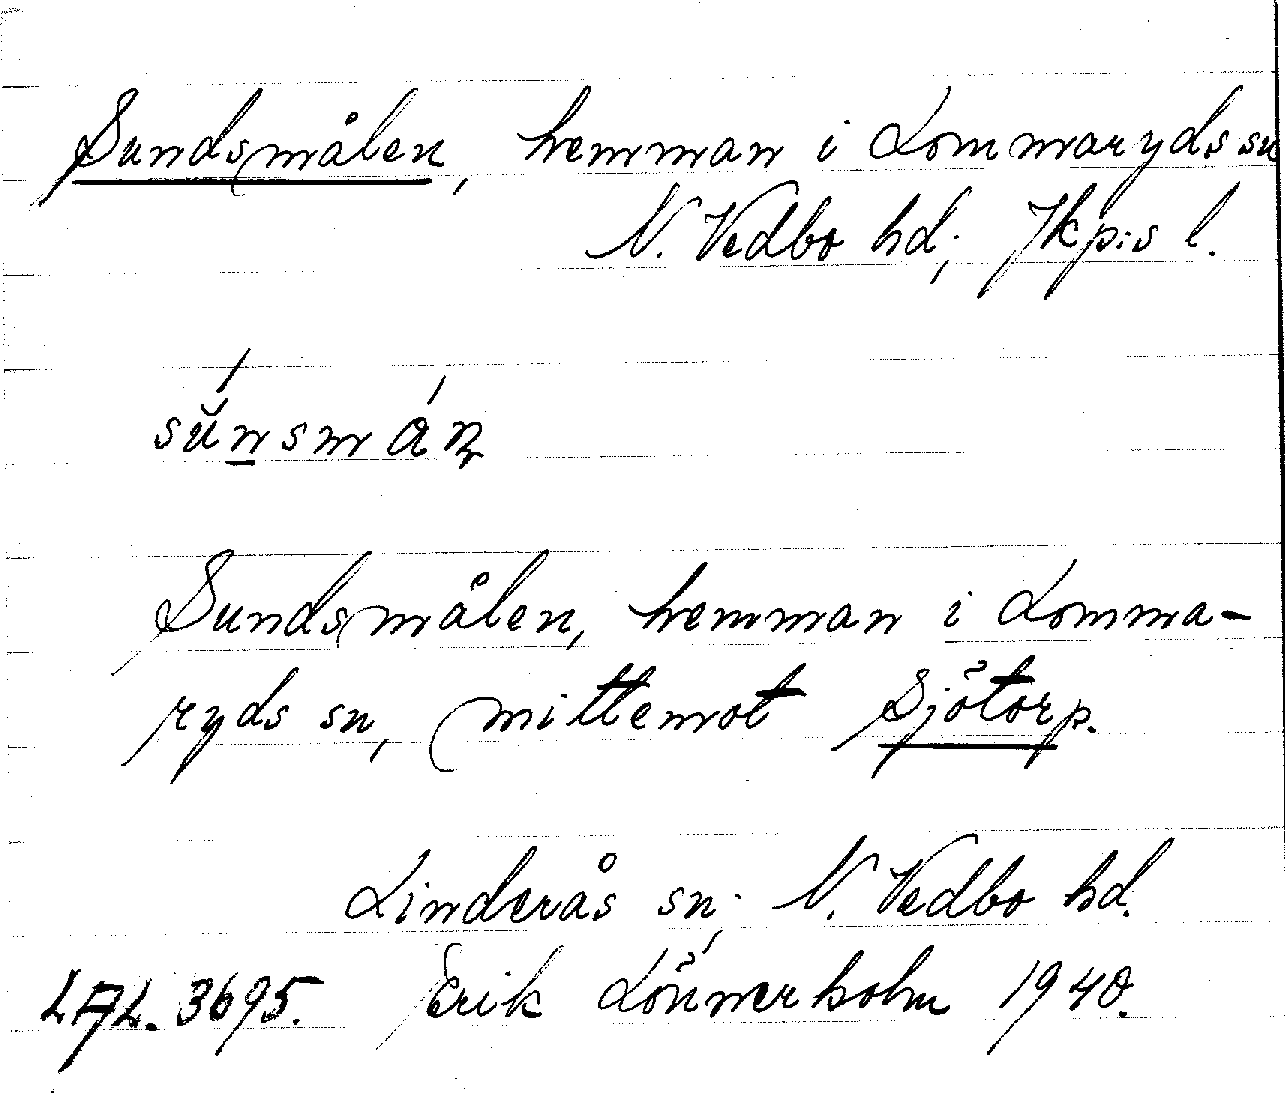 Sundsmålen, hemman i Lommaryds sn
N. Vedbo hd; Jkp:s l.
sŭnsmán
Sundsmålen, hemman i Lomma-
ryds sn, mittemot Sjötorp.
Linderås sn; N. Vedbo hd.
LAL. 3695. Erik Lönnerholm 1940.